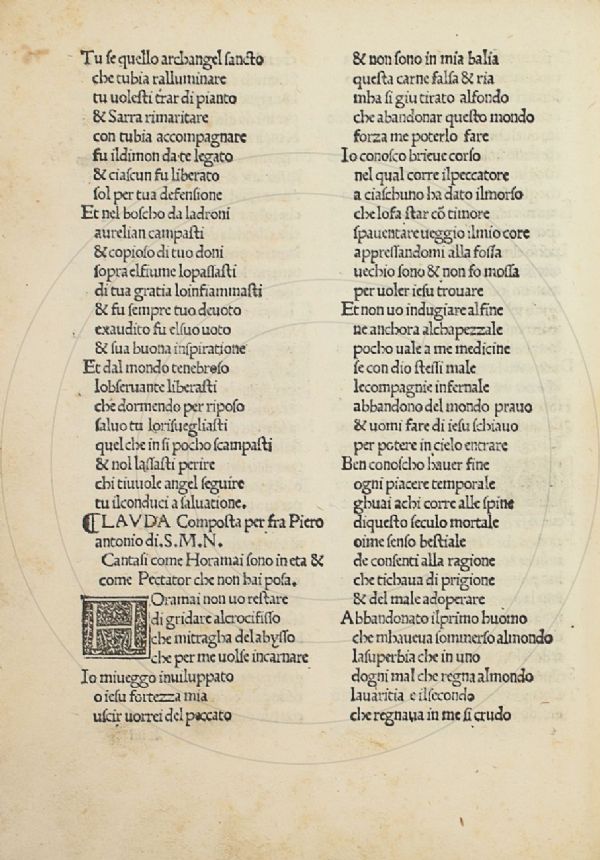 Tu se quello archangel sancto
che tubia ralluminare
tu uolesti & trar di pianto
& Sarra rimaritare
con tubia accompagnare
fu ildimon da te legato
& ciascun fu liberato
sol per tua defensione
Et nel boscho da ladroni
aurelian campasti
& copioso di tuo doni
sopra elfiume lopassasti
di tua gratia loinfiammasti
& fu sempre tuo deuoto
exaudito fu elsuo uoto
& sua buona inspiratione
Et dal mondo tenebroso
lobseruante liberasti
che dormendo per riposo
saluo tu lorisuegliasti
quel che in si pocho scampasti
& nol lassasti perire
chi tiuuole angel seguire
tu ilconduci a saluatione.
CLAVDA Composta per fra Piero
antonio di.S.M.N.
Cantasi come Horamai sono in eta &
come Peccator che non hai posa.
HOramai non uo restare
di gridare alcrocifisso
che mitragha del abysso
che per me uolse incarnare
Io miueggo inuiluppato
o iesu fortezza mia
uscir uorrei del peccato
& non sono in mia balia
questa carne falsa & ria
mha si giu tirato alfondo
che abandonar questo mondo
forza me poterlo fare
Io conosco brieue corso
nel qual corre ilpeccatore
a ciaschuno ha dato ilmorso
che lofa star cõ timore
spauentare ueggio ilmio core
appressandomi alla fossa
uechio sono & non fo mossa
per uoler iesu trouare
Et non uo indugiare alfine
ne anchora alchapezzale
pocho uale a me medicine
se con dio stessi male
lecompagnie infernale
abbandono del mondo prauo
& uomi fare di iesu schiauo
per potere in cielo entrare
Ben conoscho hauer fine
ogni piacere temporale
ghuai achi corre alle spine
diquesto seculo mortale
oime senso bestiale
de consenti alla ragione
che tichaua di prigione
& del male adoperare
Abbandonato ilprimo huomo
che mhaueua sommerso almondo
lasuperbia che in uno
dogni mal che regna almondo
lauaritia e ilsecondo
che regnaua in me si crudo